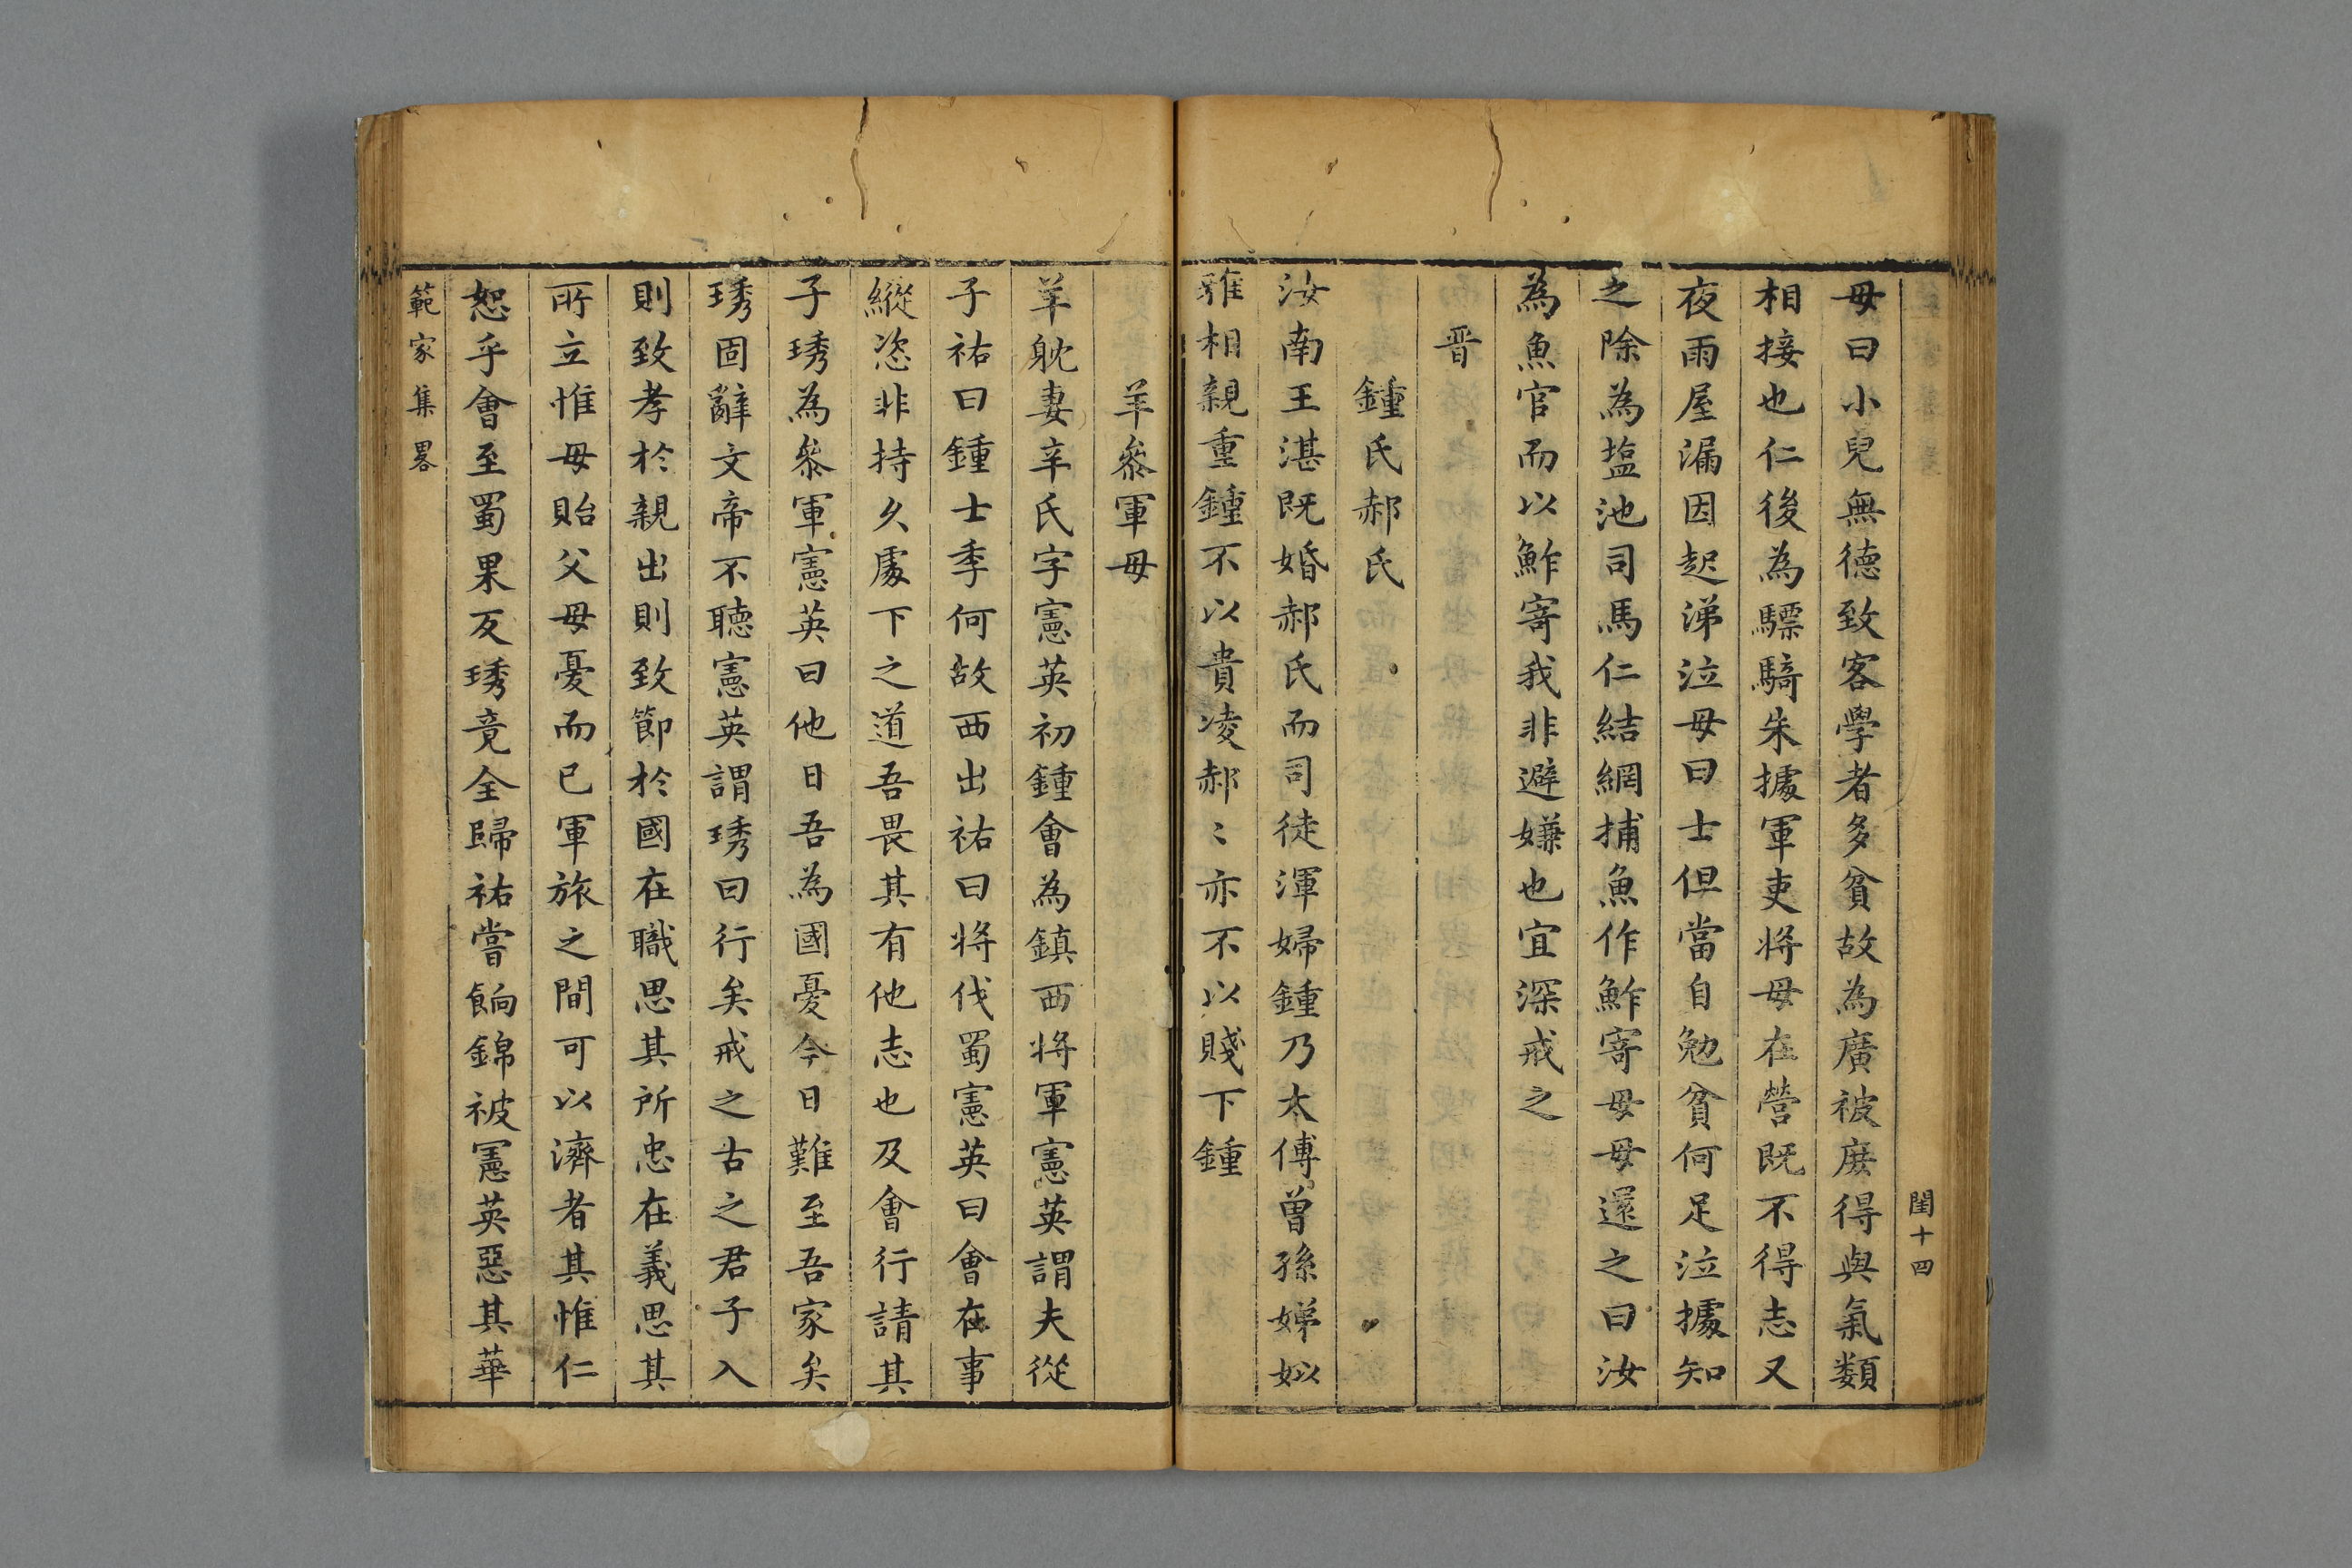 閨十四
母曰小兒無德致客學者多貧故為廣被庻得與氣類
相接也仁後為驃騎朱據軍吏将母在營既不得志又
夜雨屋漏因起涕泣母曰士但當自勉貧何足泣據知
之除為塩池司馬仁結網捕魚作鮓寄母母還之曰汝
為魚官而以鮓寄我非避嫌也宜深戒之
晋
鍾氏郝氏
汝南王湛既婚郝氏而司徒渾婦鍾乃太傅曾孫娣姒
雅相親重鍾不以貴凌郝〻亦不以賤下鍾
羊叅軍母
羊躭妻辛氏字憲英初鍾會為鎮西将軍憲英謂夫從
子祐曰鍾士季何故西出祐曰将伐蜀憲英曰會在事
縱恣非持久處下之道吾畏其有他志也及會行請其
子琇為叅軍憲英曰他日吾為國憂今日難至吾家矣
琇固辭文帝不聽憲英謂琇曰行矣戒之古之君子入
則致孝於親出則致節於國在職思其所忠在義思其
所立惟毋貽父母憂而已軍旅之間可以濟者其惟仁
恕乎會至蜀果反琇竟全歸祐嘗餉錦被憲英惡其華
範家集畧